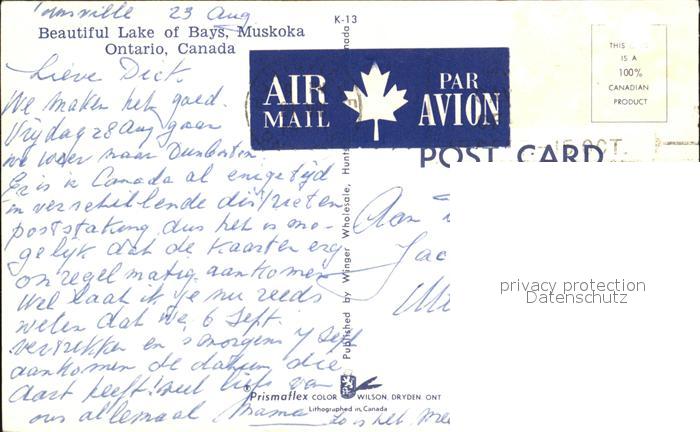 23 Aug
K-13
Beautiful Lake of Bays, Muskoka
Ontario, Canada
THIS
IS A
100%
CANADIAN
PRODUCT
AIR
MAIL
PAR
AVION
POST CARD
OCT.
Lieve Dick
We maken het goed.
Vrijdag 28 Aug gaan
we weer naar Dunbarton.
Er is in Canada al enige tijd
in verschillende districten
poststaking dus het is mo-
gelijk dat de kaarten erg
onregelmatig aankomen
Wel laat ik je nu reeds
weten dat we 6 Sept.
vertrekken en 's morgens 7 Sept
aankomen de datum die
Aart heeft! veel liefs van
ons allemaal Mama
Zo is het
Aan
Jac
Published by Winger Wholesale, Hunts
nada
Prismaflex COLOR WILSON, DRYDEN ONT
Lithographed in Canada
privacy protection
Datenschutz